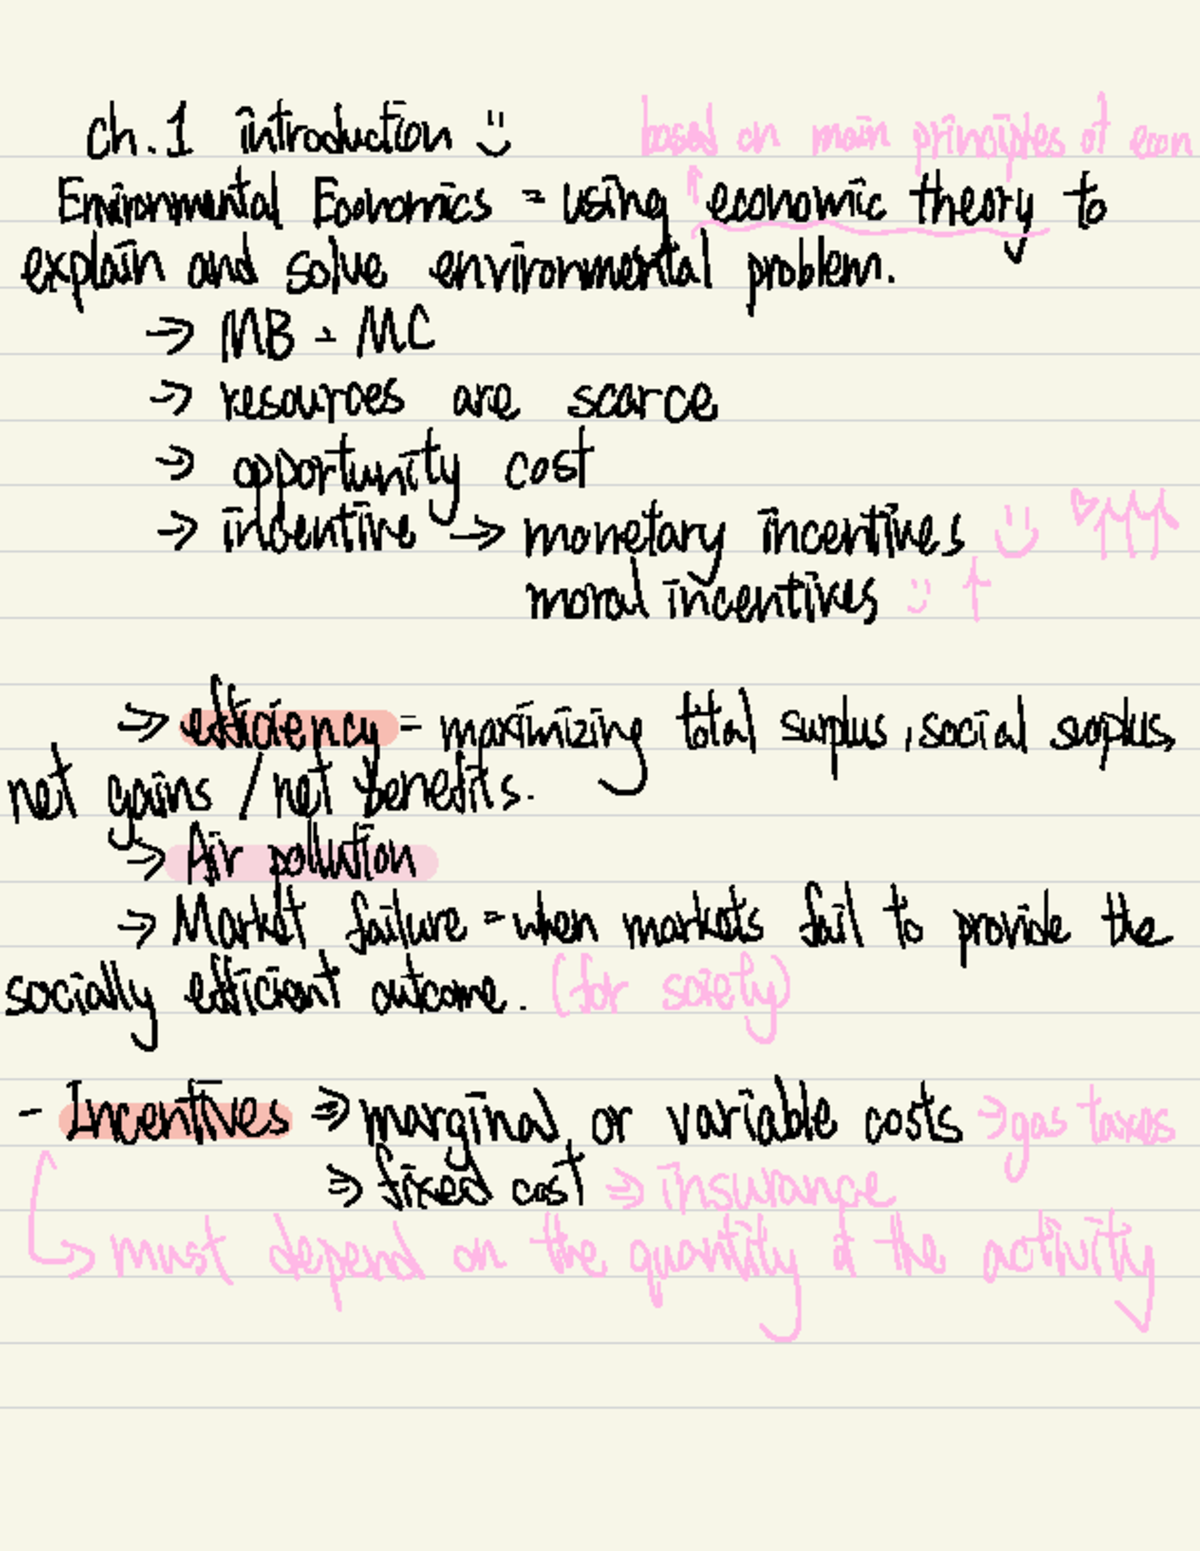 ch.1 introduction
based on main principles of econ
Environmental Economics = using economic theory to
explain and solve environmental problem.
→ MB = MC
→ resources are scarce
→ opportunity cost
→ incentive → monetary incentives
moral incentives
→ efficiency = maximizing total surplus, social surplus,
net gains / net benefits.
→ Air pollution
→ Market failure = when markets fail to provide the
socially efficient outcome. (for society)
- Incentives ⇒ marginal or variable costs ⇒ gas taxes
⇒ fixed cost ⇒ insurance
↳ must depend on the quantity of the activity